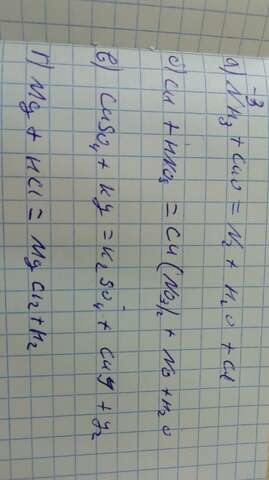 -3
а) NH3 + CuO = N2 + H2O + Cu
б) Cu + HNO3 = Cu(NO3)2 + NO + H2O
в) CuSO4 + KJ = K2SO4 + CuJ + J2
г) Mg + HCl = MgCl2 + H2